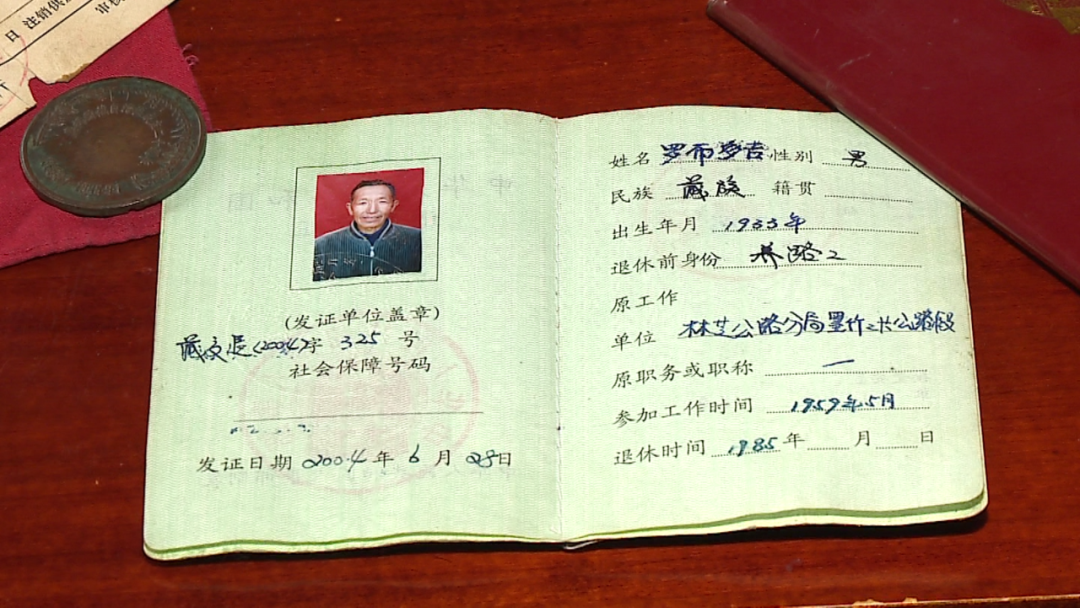 日 注销供
审核
(发证单位盖章)
藏交退(2004)字 325 号
社会保障号码
发证日期 2004 年 6 月 28日
姓名 罗布多吉 性别 男
民族 藏族 籍贯
出生年月 1933年
退休前身份 养路工
原工作
单位 林芝公路分局墨竹工卡公路段
原职务或职称 一
参加工作时间 1959年5月
退休时间 1985 年 月 日